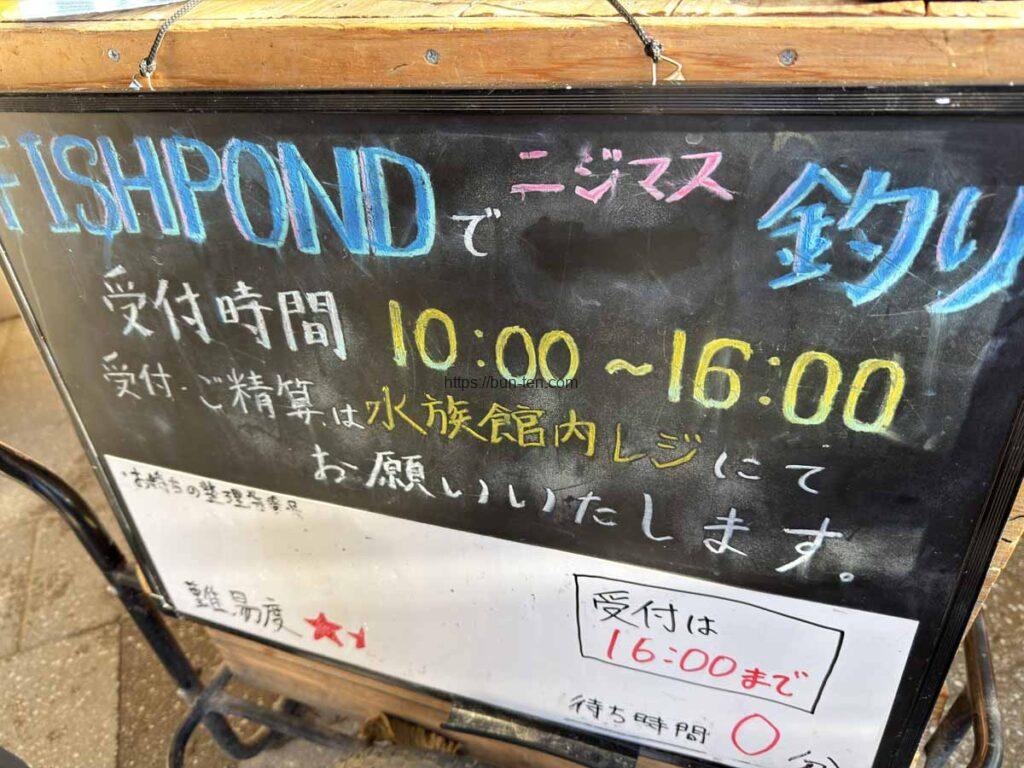 FISHPONDで ニジマス 釣り
受付時間 10:00~16:00
https://bun-ten.com
受付・ご精算は水族館内レジにて
お願いいたします。
お持ちの整理券番号
難易度★
受付は
16:00まで
待ち時間 0 分